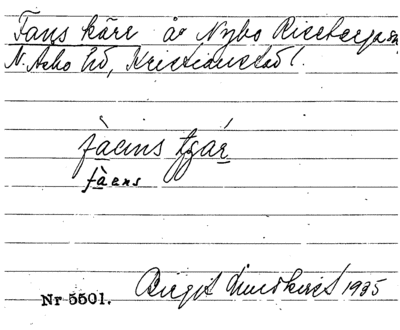 Fans käre å Nybo Riseberga sn
N. Åsbo hd, Kristianstad l.
fàens tgár
fàens
Nr 5501. Birgit Lundkvist 1935